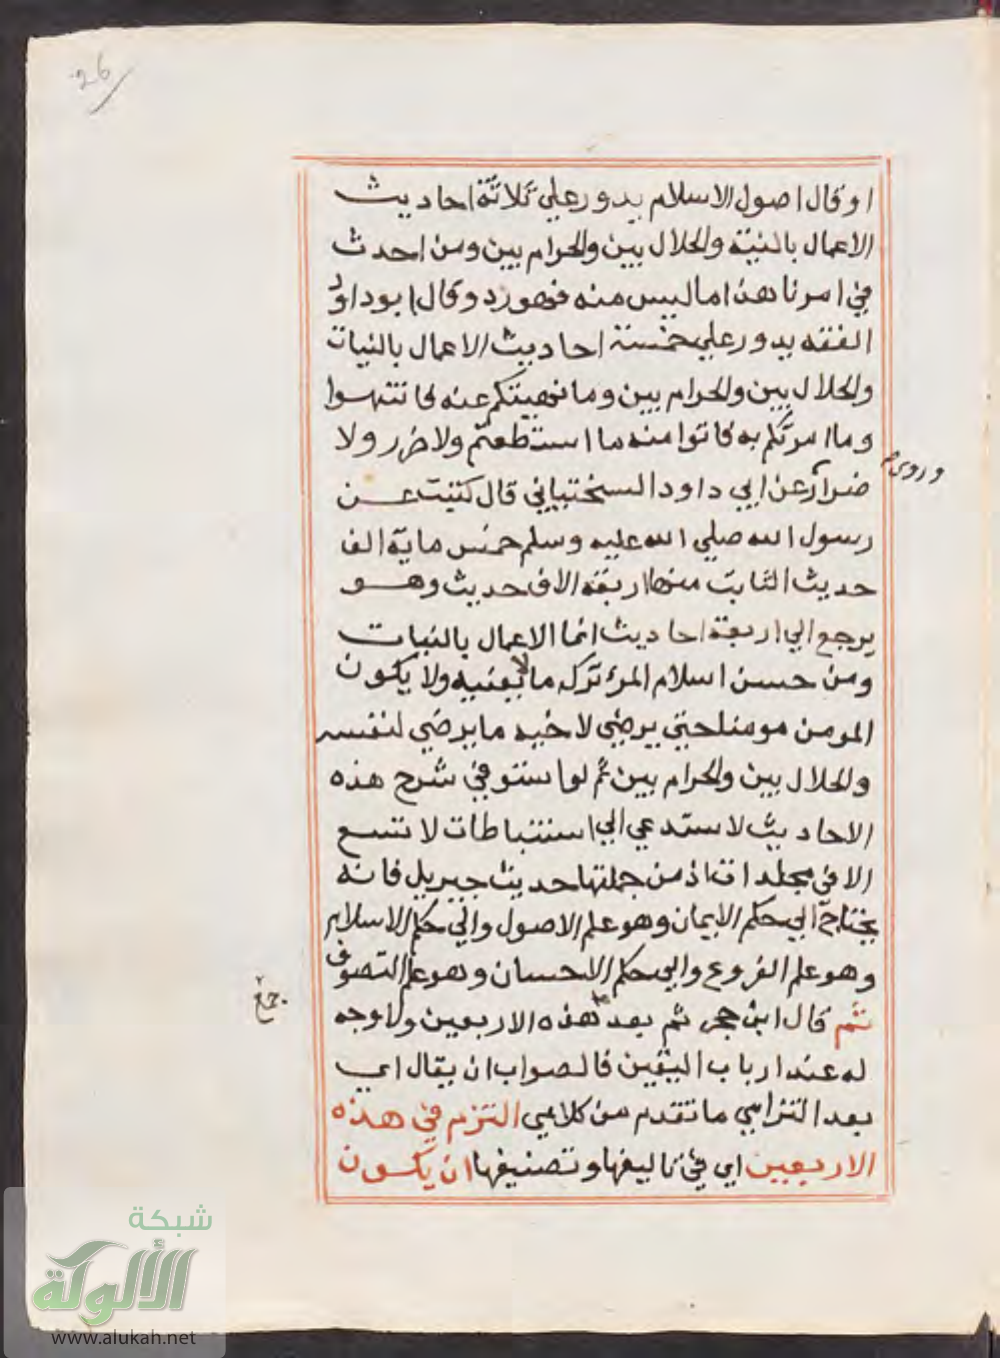 26
او قال اصول الاسلام يدور علي ثلاثة احاديث
الاعمال بالنية والحلال بين والحرام بين ومن احدث
في امرنا هذا ما ليس منه فهو رد وقال ابو داود
الفقه يدور علي خمسة احاديث الاعمال بالنيات
والحلال بين والحرام بين وما نهيتكم عنه فانتهوا
وما امرتكم به فاتوا منه ما استطعتم ولا ضرر ولا
وروي
ضرار عن ابي داود السختياني قال كتبت عن
رسول الله صلي الله عليه وسلم خمس ماية الف
حديث الثابت منها اربعة الاف حديث وهو
يرجع الي اربعة احاديث انما الاعمال بالنيات
ومن حسن اسلام المرء تركه ما لا يعنيه ولا يكون
المومن مومنا حتي يرضي لاخيه ما يرضي لنفسه
والحلال بين والحرام بين ثم لو استوفي شرح هذه
الاحاديث لاستدعي الي استنباطات لا تسع
الا في مجلدات اذ من جملتها حديث جبريل فانه
يحتاج الي حكم الايمان وهو علم الاصول والي حكم الاسلام
وهو علم الفروع والي حكم الاحسان وهو علم التصوف
ثم قال ابن حجر ثم بعد هذه الاربعين ولا وجه
له عند ارباب اليقين فالصواب ان يقال اي
بعد التزامي ما تقدم من كلامي التزم في هذه
الاربعين اي في تاليفها وتصنيفها ان يكون
شبكة
الألوكة
www.alukah.net